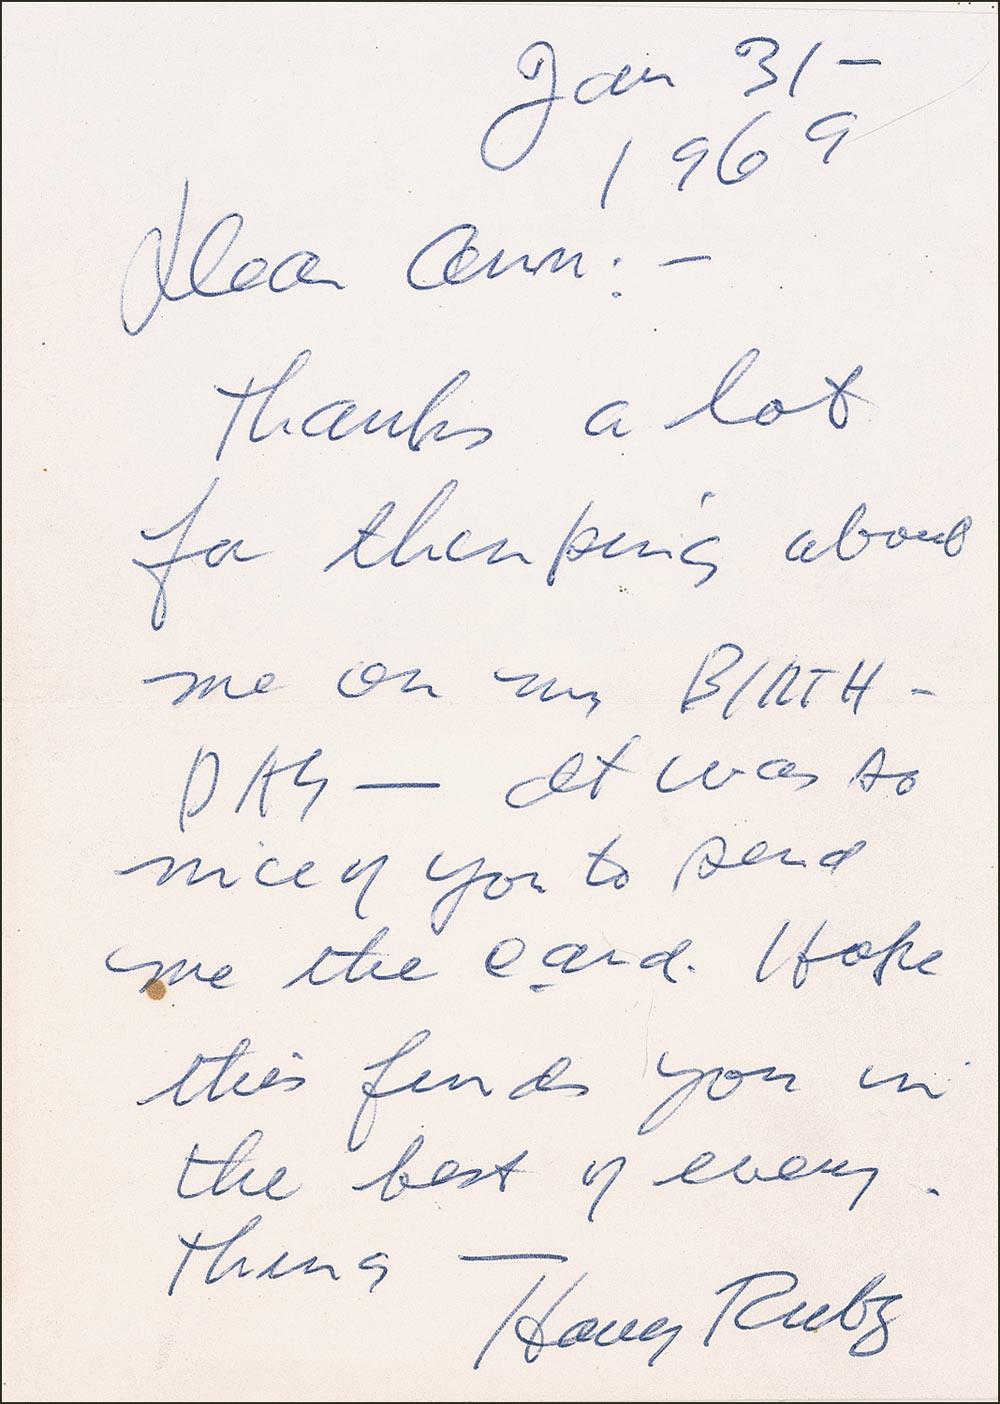 Jan 31-
1969
Dear Ann:-
Thanks a lot
for thinking about
me on my BIRTH-
DAY— It was so
nice of you to send
me the card. Hope
this finds you in
the best of every-
thing —
Harry Ruby